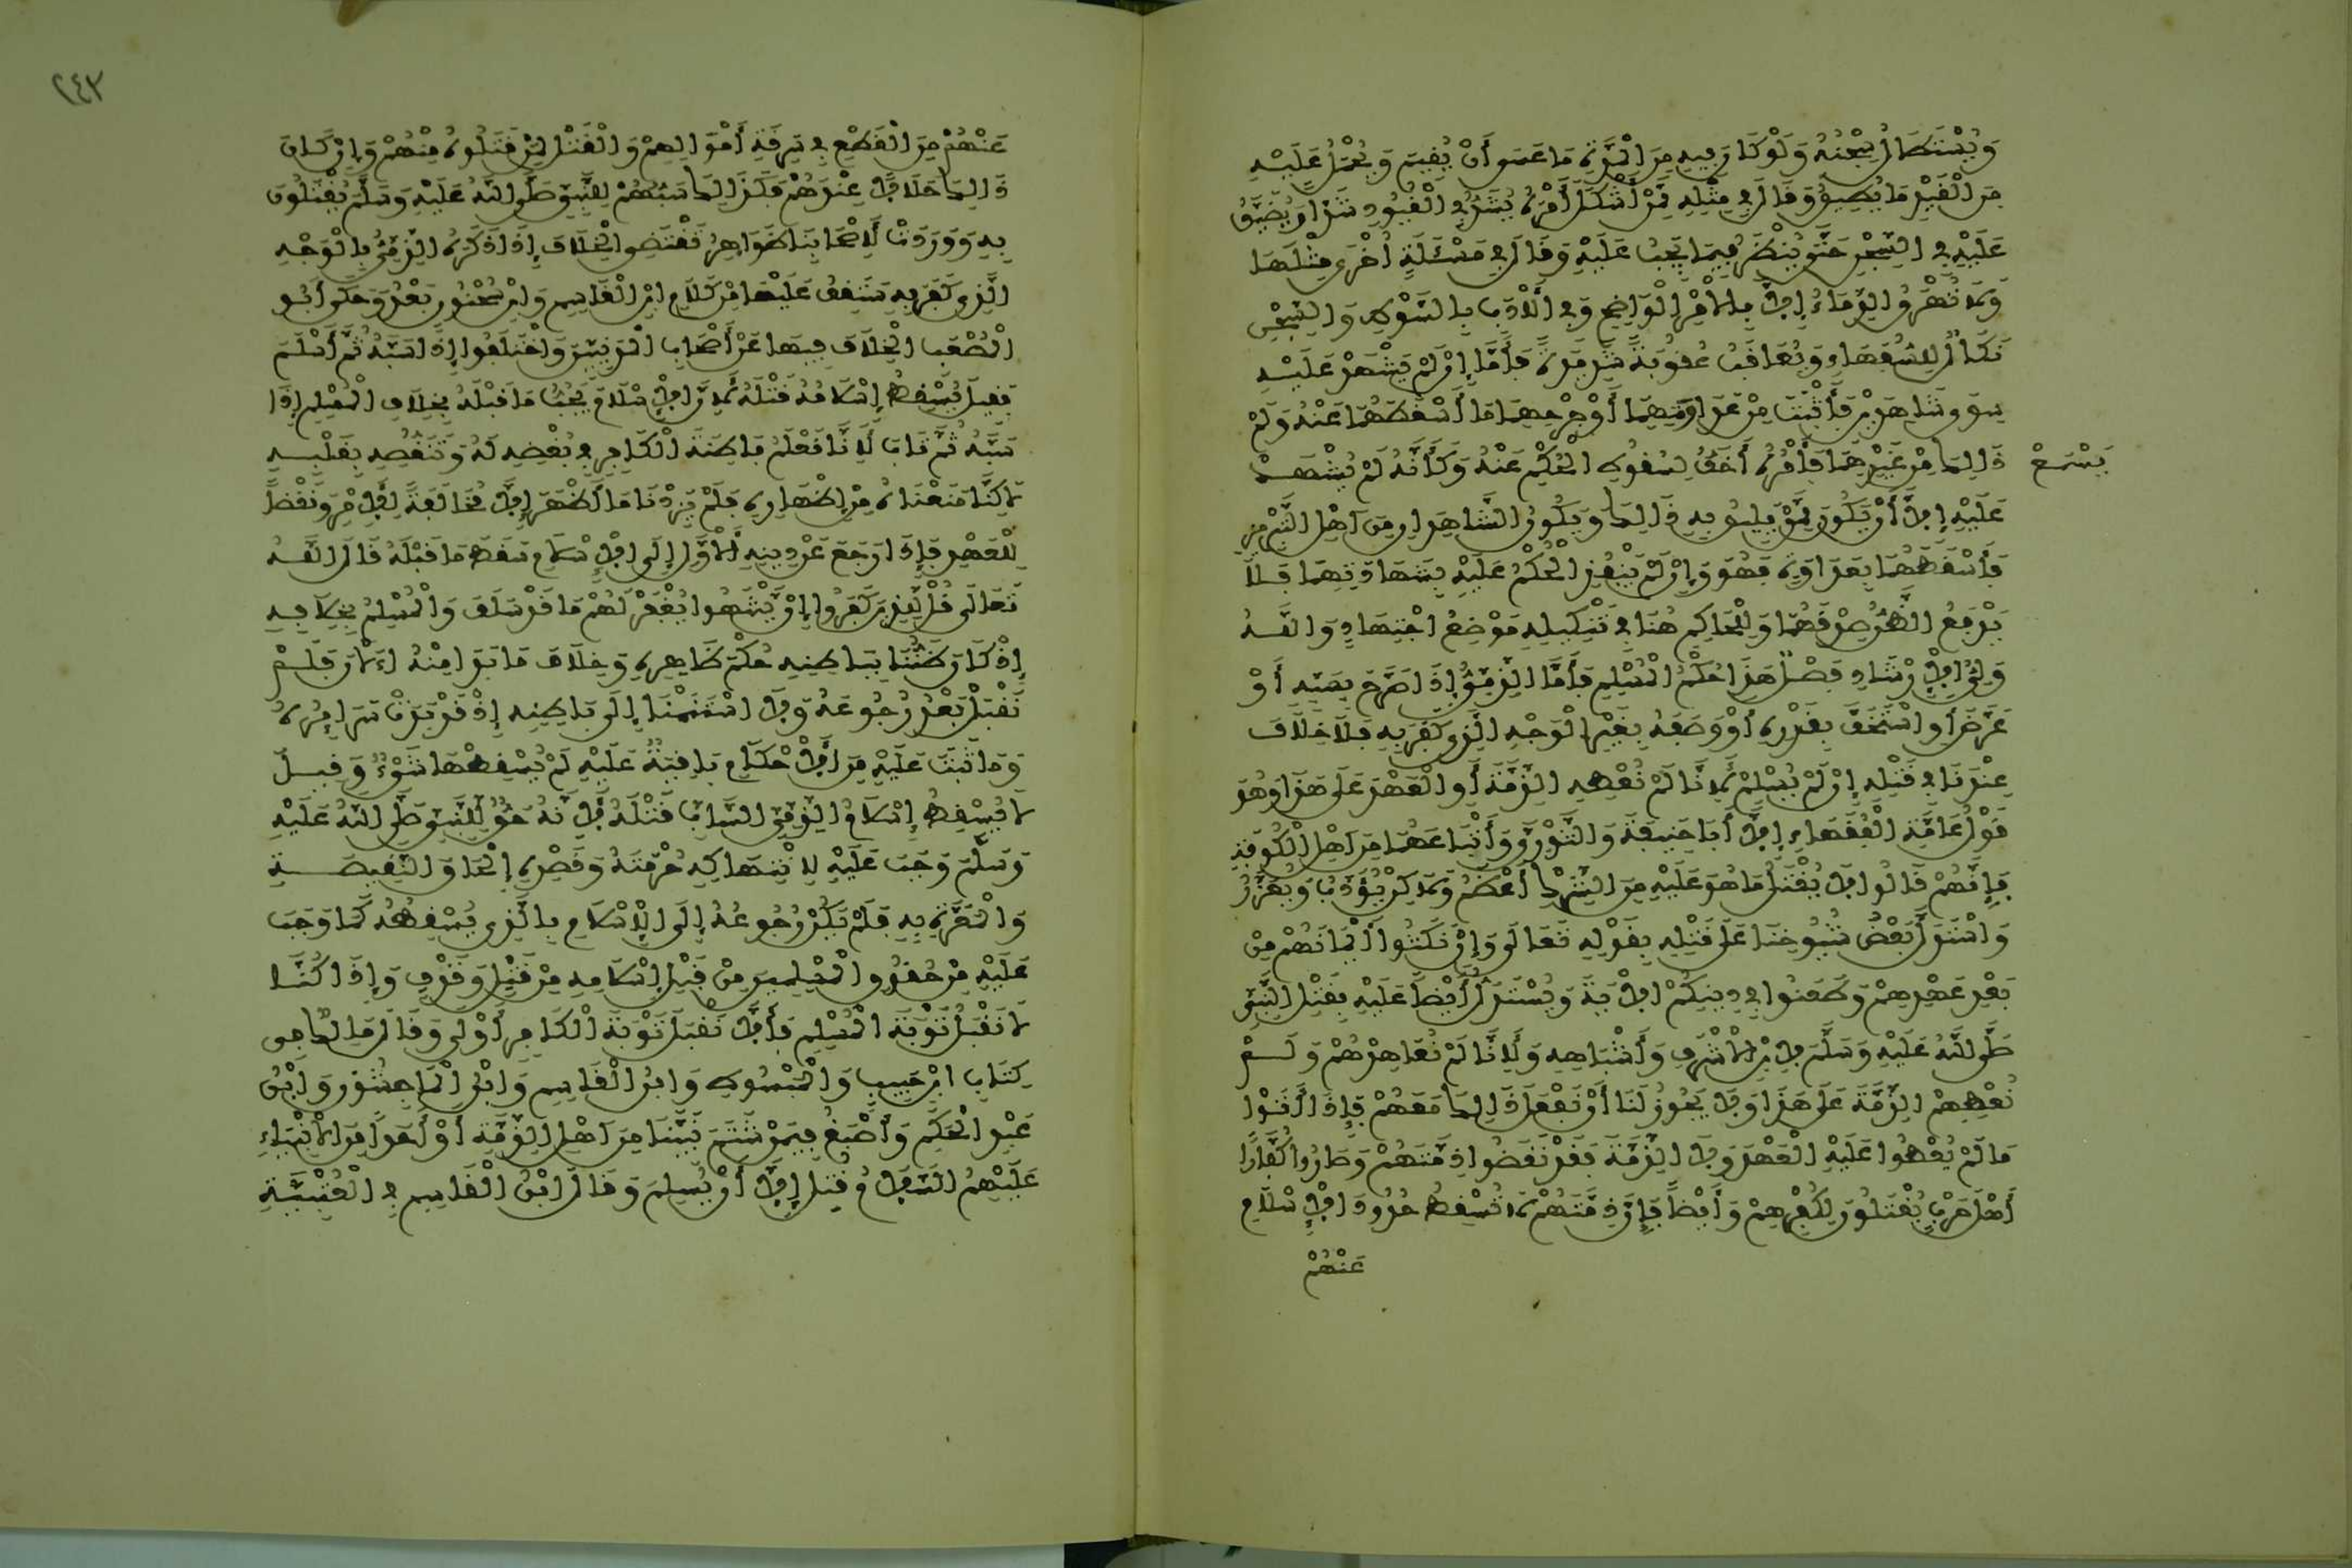 وَيُسْتَطَالُ سِجْنُهُ وَلَوْ كَانَ فِيهِ مِنَ الْمُدَّةِ مَا عَسَى أَنْ يُقِيمَ وَيُحْمَلُ عَلَيْهِ
مِنَ الْقَيْدِ مَا يُطِيقُ وَقَالَ فِي مِثْلِهِ مِمَّنْ أَشْكَلَ أَمْرُهُ يُشَدُّ فِي الْقُيُودِ شَدًّا وَيُضَيَّقُ
عَلَيْهِ فِي السِّجْنِ حَتَّى يُنْظَرَ فِيمَا يَجِبُ عَلَيْهِ وَقَالَ فِي مَسْئَلَةٍ أُخْرَى مِثْلَهَا
وَلَا تُهْرَقُ الدِّمَاءُ إِلَّا بِالْأَمْرِ الْوَاضِحِ وَفِي الْأَدَبِ بِالسَّوْطِ وَالسِّجْنِ
نَكَالٌ لِلسُّفَهَاءِ وَيُعَاقَبُ عُقُوبَةً شَدِيدَةً فَأَمَّا إِنْ لَمْ يَشْهَدْ عَلَيْهِ
سِوَى شَاهِدَيْنِ فَأَثْبَتَ مِنْ عَدَاوَتِهِمَا أَوْ جُرْحِهِمَا مَا أَسْقَطَهُمَا عَنْهُ وَلَمْ
يَسْمَعْ
ذَالِكَ مِنْ غَيْرِهِمَا فَأَمْرُهُ أَخَفُّ لِسُقُوطِ الْحُكْمِ عَنْهُ وَكَأَنَّهُ لَمْ يُشْهَدْ
عَلَيْهِ إِلَّا أَنْ يَكُونَ مِمَّنْ يَلِيقُ بِهِ ذَالِكَ وَيَكُونُ الشَّاهِدَانِ مِنْ أَهْلِ التَّبْرِيزِ
فَأَسْقَطَهُمَا بِعَدَاوَةٍ فَهُوَ وَإِنْ لَمْ يَنْفُذِ الْحُكْمُ عَلَيْهِ بِشَهَادَتِهِمَا فَلَا
يَدْفَعُ الظَّنُّ صِدْقَهُمَا وَلِلْحَاكِمِ هُنَا فِي تَنْكِيلِهِ مَوْضِعُ اجْتِهَادٍ وَاللَّهُ
وَلِيُّ الْإِرْشَادِ فَصْلٌ هَذَا حُكْمُ الْمُسْلِمِ فَأَمَّا الذِّمِّيُّ إِذَا صَرَّحَ بِسَبِّهِ أَوْ
عَرَّضَ أَوِ اسْتَخَفَّ بِقَدْرِهِ أَوْ وَصَفَهُ بِغَيْرِ الْوَجْهِ الَّذِي كَفَرَ بِهِ فَلَا خِلَافَ
عِنْدَنَا فِي قَتْلِهِ إِنْ لَمْ يُسْلِمْ لِأَنَّا لَمْ نُعْطِهِ الذِّمَّةَ أَوِ الْعَهْدَ عَلَى هَذَا وَهُوَ
قَوْلُ عَامَّةِ الْفُقَهَاءِ إِلَّا أَبَا حَنِيفَةَ وَالثَّوْرِيَّ وَأَتْبَاعَهُمَا مِنْ أَهْلِ الْكُوفَةِ
فَإِنَّهُمْ قَالُوا لَا يُقْتَلُ مَا هُوَ عَلَيْهِ مِنَ الشِّرْكِ أَعْظَمُ وَلَاكِنْ يُؤَدَّبُ وَيُعَزَّرُ
وَاسْتَدَلَّ بَعْضُ شُيُوخِنَا عَلَى قَتْلِهِ بِقَوْلِهِ تَعَالَى وَإِنْ نَكَثُوا أَيْمَانَهُمْ مِنْ
بَعْدِ عَهْدِهِمْ وَطَعَنُوا فِي دِينِكُمْ الْآيَةَ وَيُسْتَدَلُّ أَيْضًا عَلَيْهِ بِقَتْلِ النَّبِيِّ
صَلَّى اللَّهُ عَلَيْهِ وَسَلَّمَ لِابْنِ الْأَشْرَفِ وَأَشْبَاهِهِ وَلِأَنَّا لَمْ نُعَاهِدْهُمْ وَلَمْ
نُعْطِهِمْ الذِّمَّةَ عَلَى هَذَا وَلَا يَجُوزُ لَنَا أَنْ نَفْعَلَ ذَالِكَ مَعَهُمْ فَإِذَا أَتَوْا
مَا لَمْ يُعْطُوا عَلَيْهِ الْعَهْدَ وَلَا الذِّمَّةَ فَقَدْ نَقَضُوا ذِمَّتَهُمْ وَصَارُوا كُفَّارًا
أَهْلَ حَرْبٍ يُقْتَلُونَ لِكُفْرِهِمْ وَأَيْضًا فَإِنَّ ذِمَّتَهُمْ لَا تُسْقِطُ حُدُودَ الْإِسْلَامِ
عَنْهُمْ
٢٤٣
عَنْهُمْ مِنَ الْقَطْعِ فِي سَرِقَةِ أَمْوَالِهِمْ وَالْقَتْلِ لِمَنْ قَتَلُوهُ مِنْهُمْ وَإِنْ كَانَ
ذَالِكَ حَلَالًا عِنْدَهُمْ فَكَذَالِكَ سَبُّهُمْ لِلنَّبِيِّ صَلَّى اللَّهُ عَلَيْهِ وَسَلَّمَ يُقْتَلُونَ
بِهِ وَوَرَدَتْ لِأَصْحَابِنَا ظَوَاهِرُ تَقْتَضِي الْخِلَافَ إِذَا ذَكَرَهُ الذِّمِّيُّ بِالْوَجْهِ
الَّذِي كَفَرَ بِهِ سَتَقِفُ عَلَيْهَا مِنْ كَلَامِ ابْنِ الْقَاسِمِ وَابْنِ سُحْنُونٍ بَعْدُ وَحَكَى أَبُو
الْمُصْعَبِ الْخِلَافَ فِيهَا عَنْ أَصْحَابِ الْمَدِينِيِّينَ وَاخْتَلَفُوا إِذَا سَبَّهُ ثُمَّ أَسْلَمَ
فَقِيلَ يُسْقِطُ إِسْلَامُهُ قَتْلَهُ لِأَنَّ الْإِسْلَامَ يَجُبُّ مَا قَبْلَهُ بِخِلَافِ الْمُسْلِمِ إِذَا
سَبَّهُ ثُمَّ تَابَ لِأَنَّا نَعْلَمُ بَاطِنَةَ الْكَافِرِ فِي بُغْضِهِ لَهُ وَتَنَقُّصِهِ بِقَلْبِهِ
لَاكِنَّا مَنَعْنَاهُ مِنْ إِظْهَارِهِ فَلَمْ يَزِدْنَا مَا أَظْهَرَ إِلَّا مُخَالَفَةً لِلْأَمْرِ وَنَقْضًا
لِلْعَهْدِ فَإِذَا رَجَعَ عَنْ دِينِهِ الْأَوَّلِ إِلَى الْإِسْلَامِ سَقَطَ مَا قَبْلَهُ قَالَ اللَّهُ
تَعَالَى قُلْ لِلَّذِينَ كَفَرُوا إِنْ يَنْتَهُوا يُغْفَرْ لَهُمْ مَا قَدْ سَلَفَ وَالْمُسْلِمُ بِخِلَافِهِ
إِذْ كَانَ ظَنُّنَا بِبَاطِنِهِ حُكْمَ ظَاهِرِهِ وَخِلَافَ مَا بَدَا مِنْهُ الْآنَ فَلَمْ
نَقْبَلْ بَعْدُ رُجُوعَهُ وَلَا اسْتَنَمْنَا إِلَى بَاطِنِهِ إِذْ قَدْ بَدَتْ سَرَائِرُهُ
وَمَا ثَبَتَ عَلَيْهِ مِنَ الْأَحْكَامِ بَاقِيَةٌ عَلَيْهِ لَمْ يُسْقِطْهَا شَيْءٌ وَقِيلَ
لَا يُسْقِطُ إِسْلَامُ الذِّمِّيِّ السَّابِّ قَتْلَهُ لِأَنَّهُ حَقٌّ لِلنَّبِيِّ صَلَّى اللَّهُ عَلَيْهِ
وَسَلَّمَ وَجَبَ عَلَيْهِ لِانْتِهَاكِهِ حُرْمَتَهُ وَقَصْدِهِ إِلْحَاقَ النَّقِيصَةِ
وَالْمَعَرَّةِ بِهِ فَلَمْ يَكُنْ رُجُوعُهُ إِلَى الْإِسْلَامِ بِالَّذِي يُسْقِطُهُ كَمَا وَجَبَ
عَلَيْهِ مِنْ حُقُوقِ الْمُسْلِمِينَ مِنْ قَبْلِ إِسْلَامِهِ مِنْ قَتْلٍ وَقَذْفٍ وَإِذَا كُنَّا
لَا نَقْبَلُ تَوْبَةَ الْمُسْلِمِ فَأَلَّا نَقْبَلَ تَوْبَةَ الْكَافِرِ أَوْلَى وَقَالَ مَالِكٌ فِي
كِتَابِ ابْنِ حَبِيبٍ وَالْمَبْسُوطِ وَابْنُ الْقَاسِمِ وَابْنُ الْمَاجِشُونِ وَابْنُ
عَبْدِ الْحَكَمِ وَأَصْبَغُ فِيمَنْ شَتَمَ نَبِيَّنَا مِنْ أَهْلِ الذِّمَّةِ أَوْ أَحَدًا مِنَ الْأَنْبِيَاءِ
عَلَيْهِمُ السَّلَامُ قُتِلَ إِلَّا أَنْ يُسْلِمَ وَقَالَ ابْنُ الْقَاسِمِ فِي الْعُتْبِيَّةِ